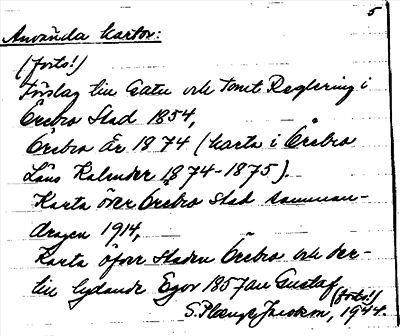 5
Använda kartor:
(forts!)
Förslag till Gatu och Tomt Reglering i
Örebro Stad 1854,
Örebro År 1874 (karta i Örebro
Läns Kalender 1874-1875).
Karta över Örebro stad samman-
dragen 1914,
Karta öfver Staden Örebro och der-
till lydande Egor 1857 au Gustaf
(forts!)
S. 1944.